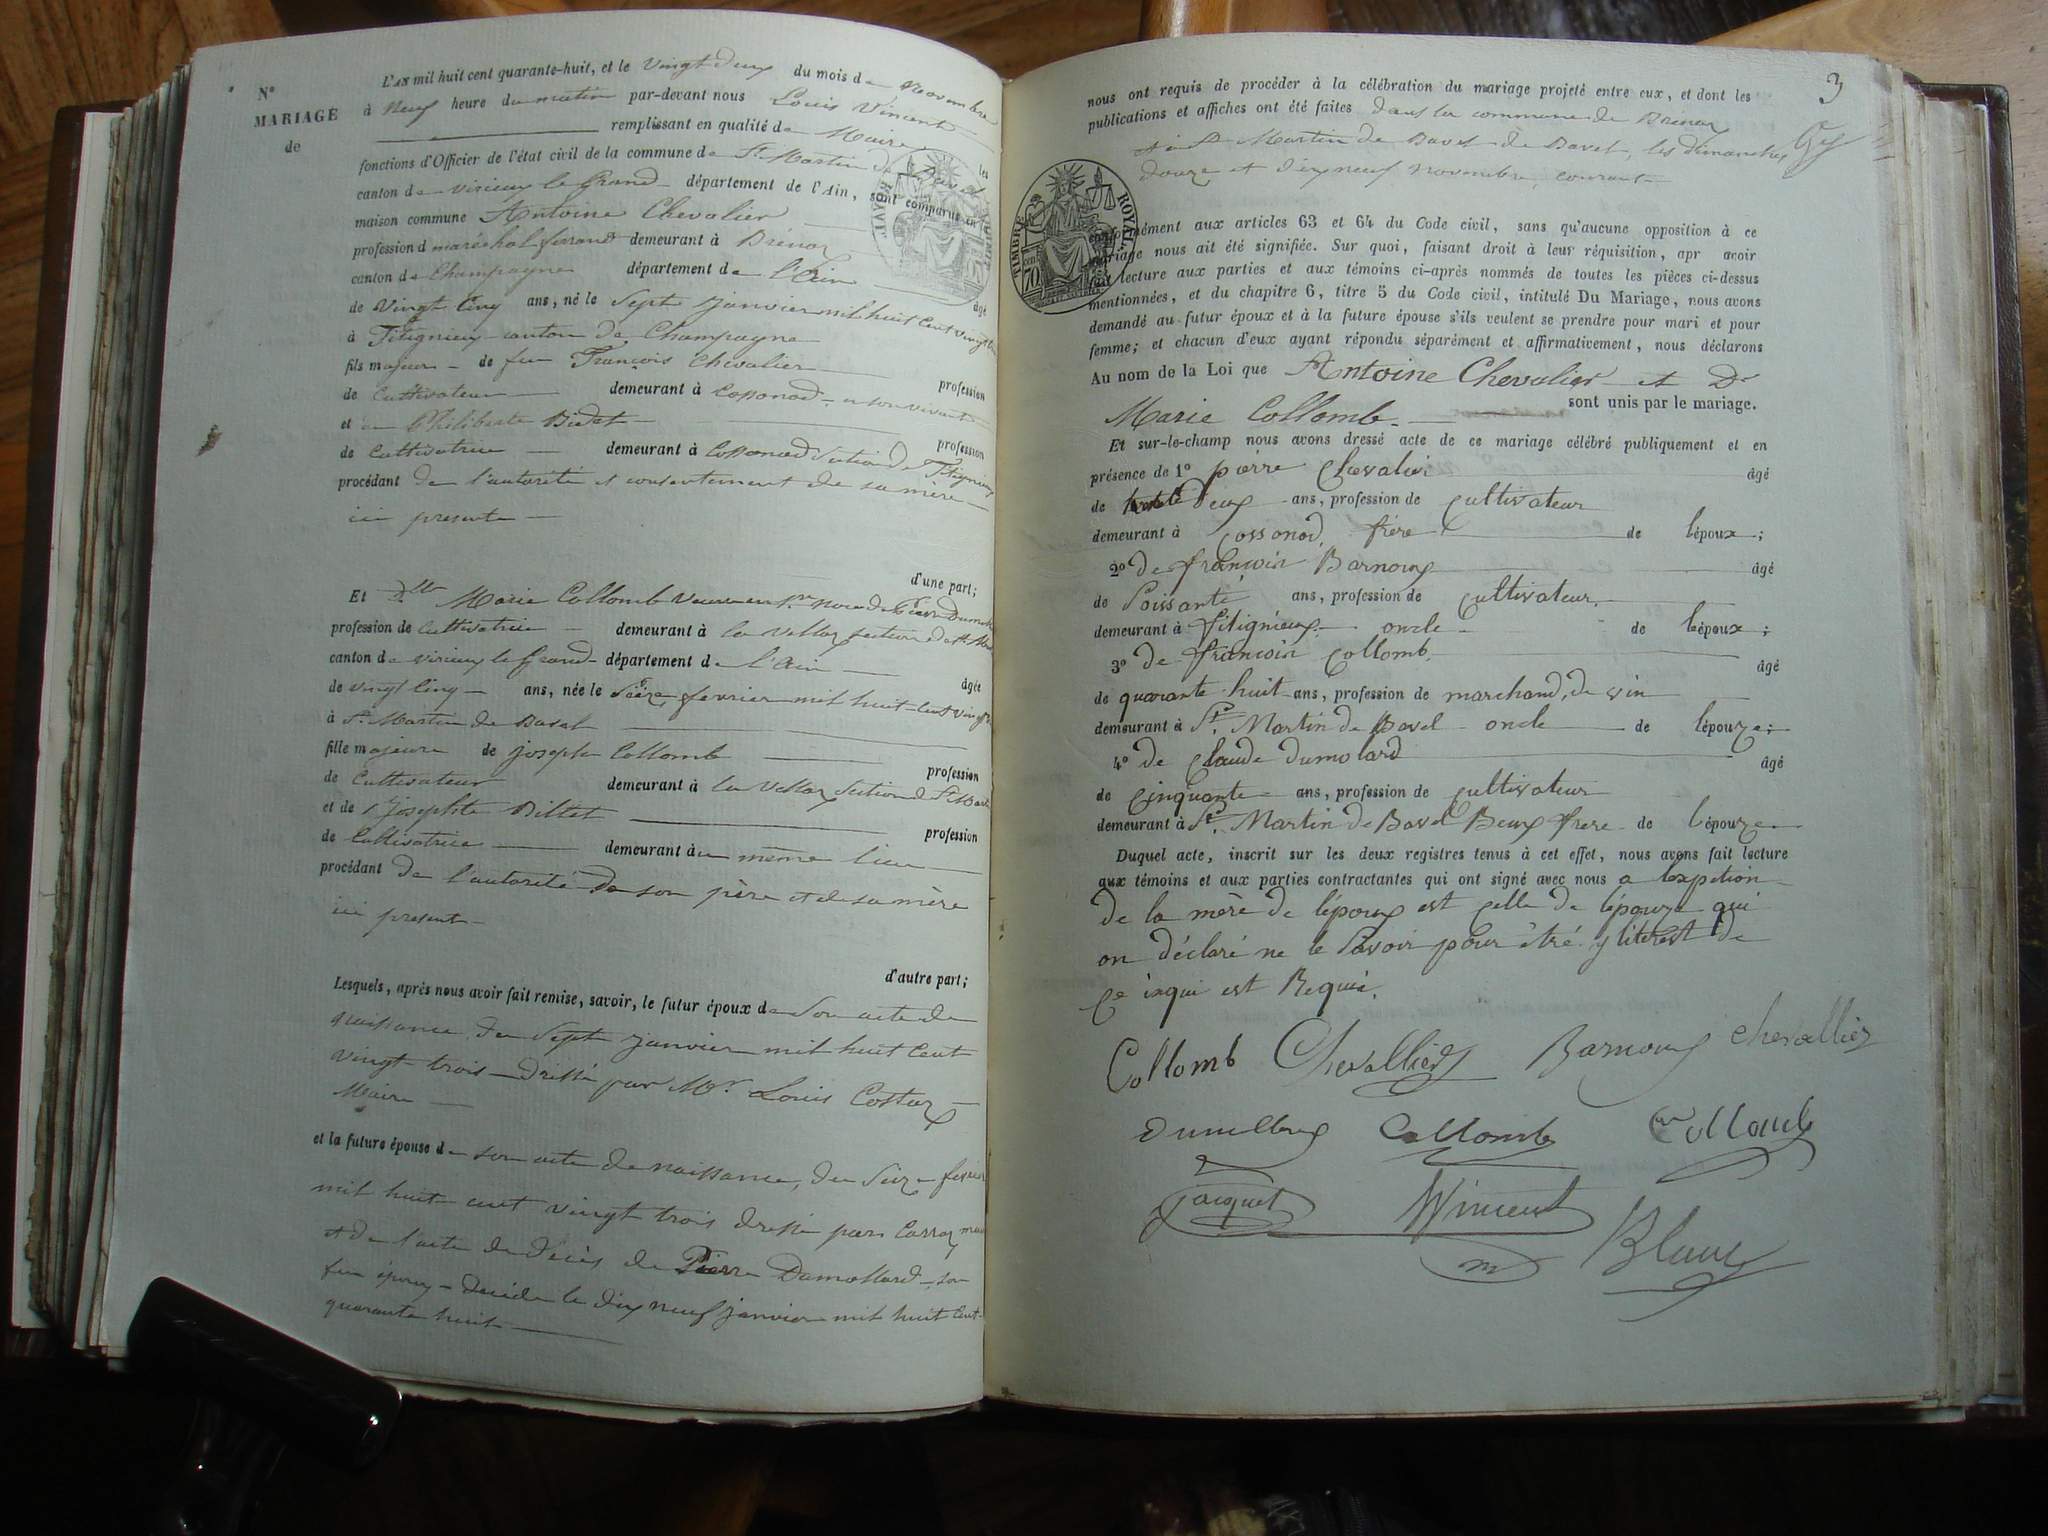 N°
MARIAGE
de
L'AN mil huit cent quarante-huit, et le vingt deux du mois de Novembre
à neuf heure du matin par-devant nous Louis Vincent
remplissant en qualité de Maire les
fonctions d'Officier de l'état civil de la commune de St Martin de Bavel
canton de virieux le Grand département de l'Ain, sont comparus en la
maison commune Antoine Chevalier
profession d maréchal ferrand demeurant à Brénaz
canton de Champagne département de l'Ain âgé
de Vingt Cinq ans, né le Sept janvier mil huit Cent vingt
à Fitignieu canton de Champagne
fils majeur de feu François Chevalier profession
de Cultivateur demeurant à Cossonod en son vivant
et Philiberte Bidet profession
de Cultivatrice demeurant à Cossonod Section de Fitignieu
procédant de l'autorité et consentement de sa mère
ici presente
d'une part;
Et Dlle Marie Collomb veuve en pr noce de Pierre
profession de Cultivatrice demeurant à la Vellaz section de St
canton de virieux le Grand département de l'Ain âgée
de vingt Cinq ans, née le Seize fevrier mil huit Cent vingt
à St Martin de Bavel
fille majeure de joseph Collomb profession
de Cultivateur demeurant à la Vellaz Section de St
et de josephte Billet profession
de Cultivatrice demeurant au même lieu
procédant de l'autorité de son père et de sa mère
ici present
d'autre part;
Lesquels, après nous avoir fait remise, savoir, le futur époux de Son acte de
naissance du Sept janvier mil huit Cent
vingt trois dressé par Mr Louis Costaz
Maire
et la future épouse de son acte de naissance, du Seize fevrier
mil huit cent vingt trois dressé par Carraz
et de l'acte de décès de Pierre Dumollard son
feu époux décédé le dix neuf janvier mil huit Cent
quarante huit
3
nous ont requis de procéder à la célébration du mariage projeté entre eux, et dont les
publications et affiches ont été faites dans la commune de Brénaz
et à St Martin de Bavel de Bavel, les dimanches
douze et dixneuf novembre, courant
TIMBRE ROYAL
70
conformément aux articles 63 et 64 du Code civil, sans qu'aucune opposition à ce
mariage nous ait été signifiée. Sur quoi, faisant droit à leur réquisition, apr avoir
fait lecture aux parties et aux témoins ci-après nommés de toutes les pièces ci-dessus
mentionnées, et du chapitre 6, titre 5 du Code civil, intitulé Du Mariage, nous avons
demandé au futur époux et à la future épouse s'ils veulent se prendre pour mari et pour
femme; et chacun d'eux ayant répondu séparément et affirmativement, nous déclarons
Au nom de la Loi que Antoine Chevalier et De
Marie Collomb sont unis par le mariage.
Et sur-le-champ nous avons dressé acte de ce mariage célébré publiquement et en
présence de 1° pierre Chevalier âgé
de trente Deux ans, profession de cultivateur
demeurant à Cossonod, frère de lépoux;
2° de francoin Barnoux âgé
de Soissante ans, profession de cultivateur.
demeurant à fitignieux oncle de lépoux;
3° de francoin Collomb. âgé
de quarante huit ans, profession de marchand, de vin
demeurant à St. Martin de Bavel oncle de lépouze;
4° de claude dumolard âgé
de cinquante ans, profession de cultivateur
demeurant à St. Martin de Bavel Beux frere de lépouze
Duquel acte, inscrit sur les deux registres tenus à cet effet, nous avons fait lecture
aux témoins et aux parties contractantes qui ont signé avec nous a lexption
de la mère de lépoux est celle de lépouze qui
on déclaré ne le Savoir pour être
ce inqui est Requis.
Collomb Chevallier Barnoux Chevallier
Collomb Collomb
jacquet Vincent
m Blanc